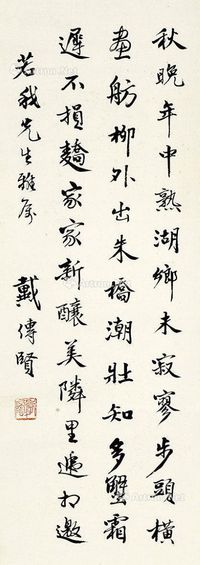 秋晚年中熟湖鄉未寂寥步頭橫
畫舫柳外出朱橋潮壯知多蟹霜
遲不損家家新釀美隣里遞相邀
若我先生雅属 戴傳賢